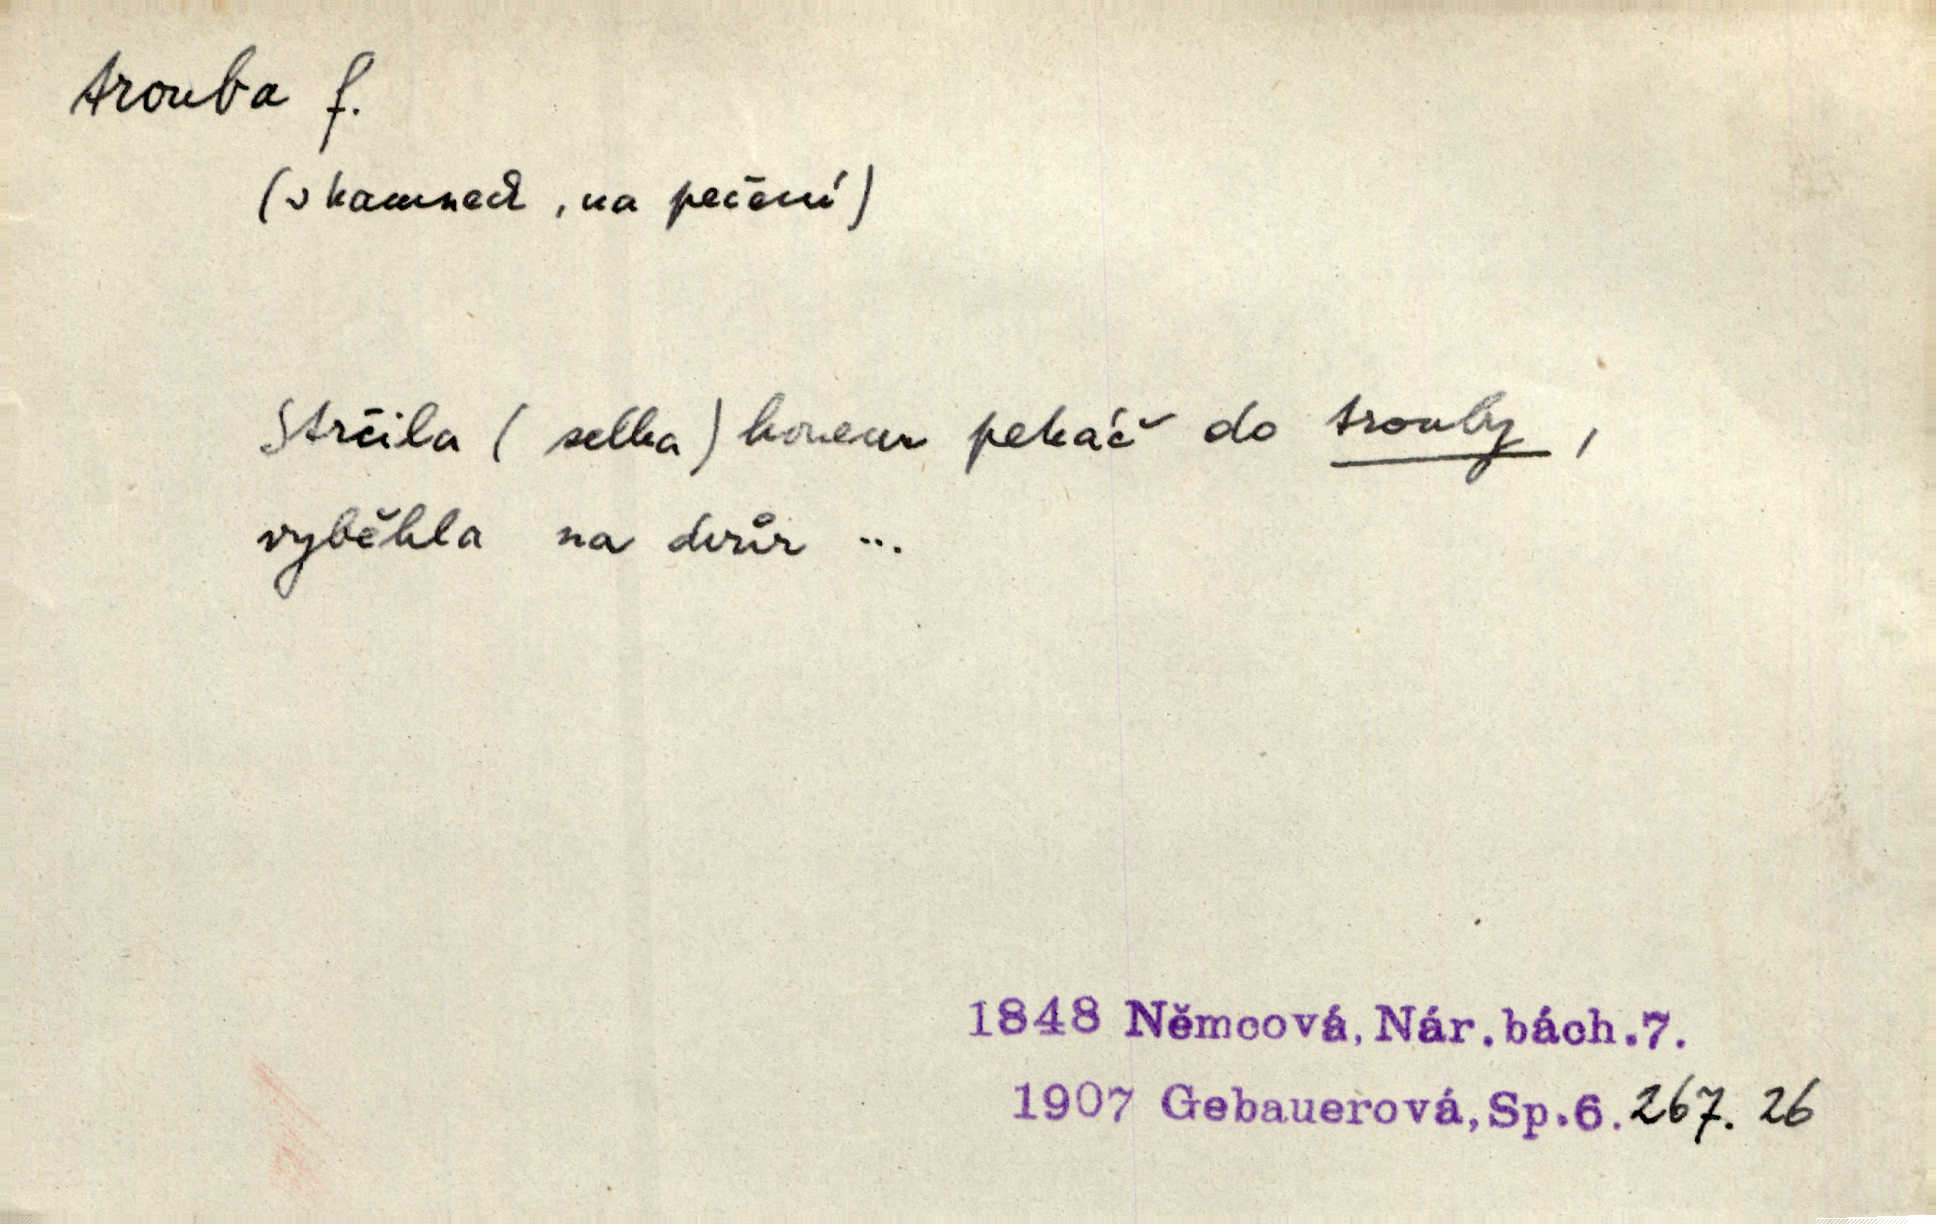 trouba f.
(v kamnech, na pečení)
Strčila (selka) honem pekáč do trouby,
vyběhla na dvůr ...
1848 Němcová, Nár. bách. 7.
1907 Gebauerová, Sp. 6. 267. 26